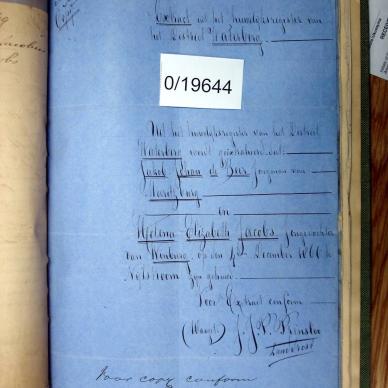 Extract uit het huwelijksregister van
het District Waterberg
0/19644
Uit het huwelijksregister van het District
Waterberg word getrokken dat:
Jacob Johan de Beer jongman van
Maritzburg
en
Helena Elizabeth Jacobs jongedochter
van Winburg op den December 1860 te
Nylstroom zyn gehuwd
Voor Extract conform
(Waargt.)
Landdrost
Voor copy conform